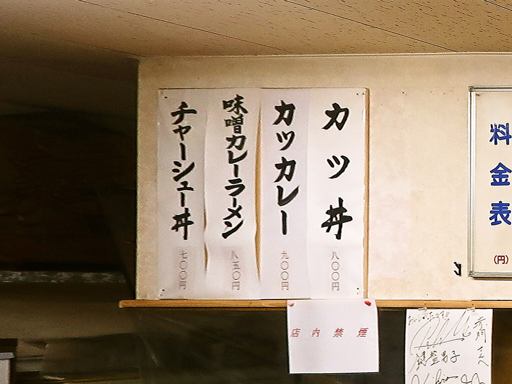 カツ丼
八〇〇円
カツカレー
九〇〇円
味噌カレーラーメン
八五〇円
チャーシュー丼
七〇〇円
料金表
(円)
店内禁煙